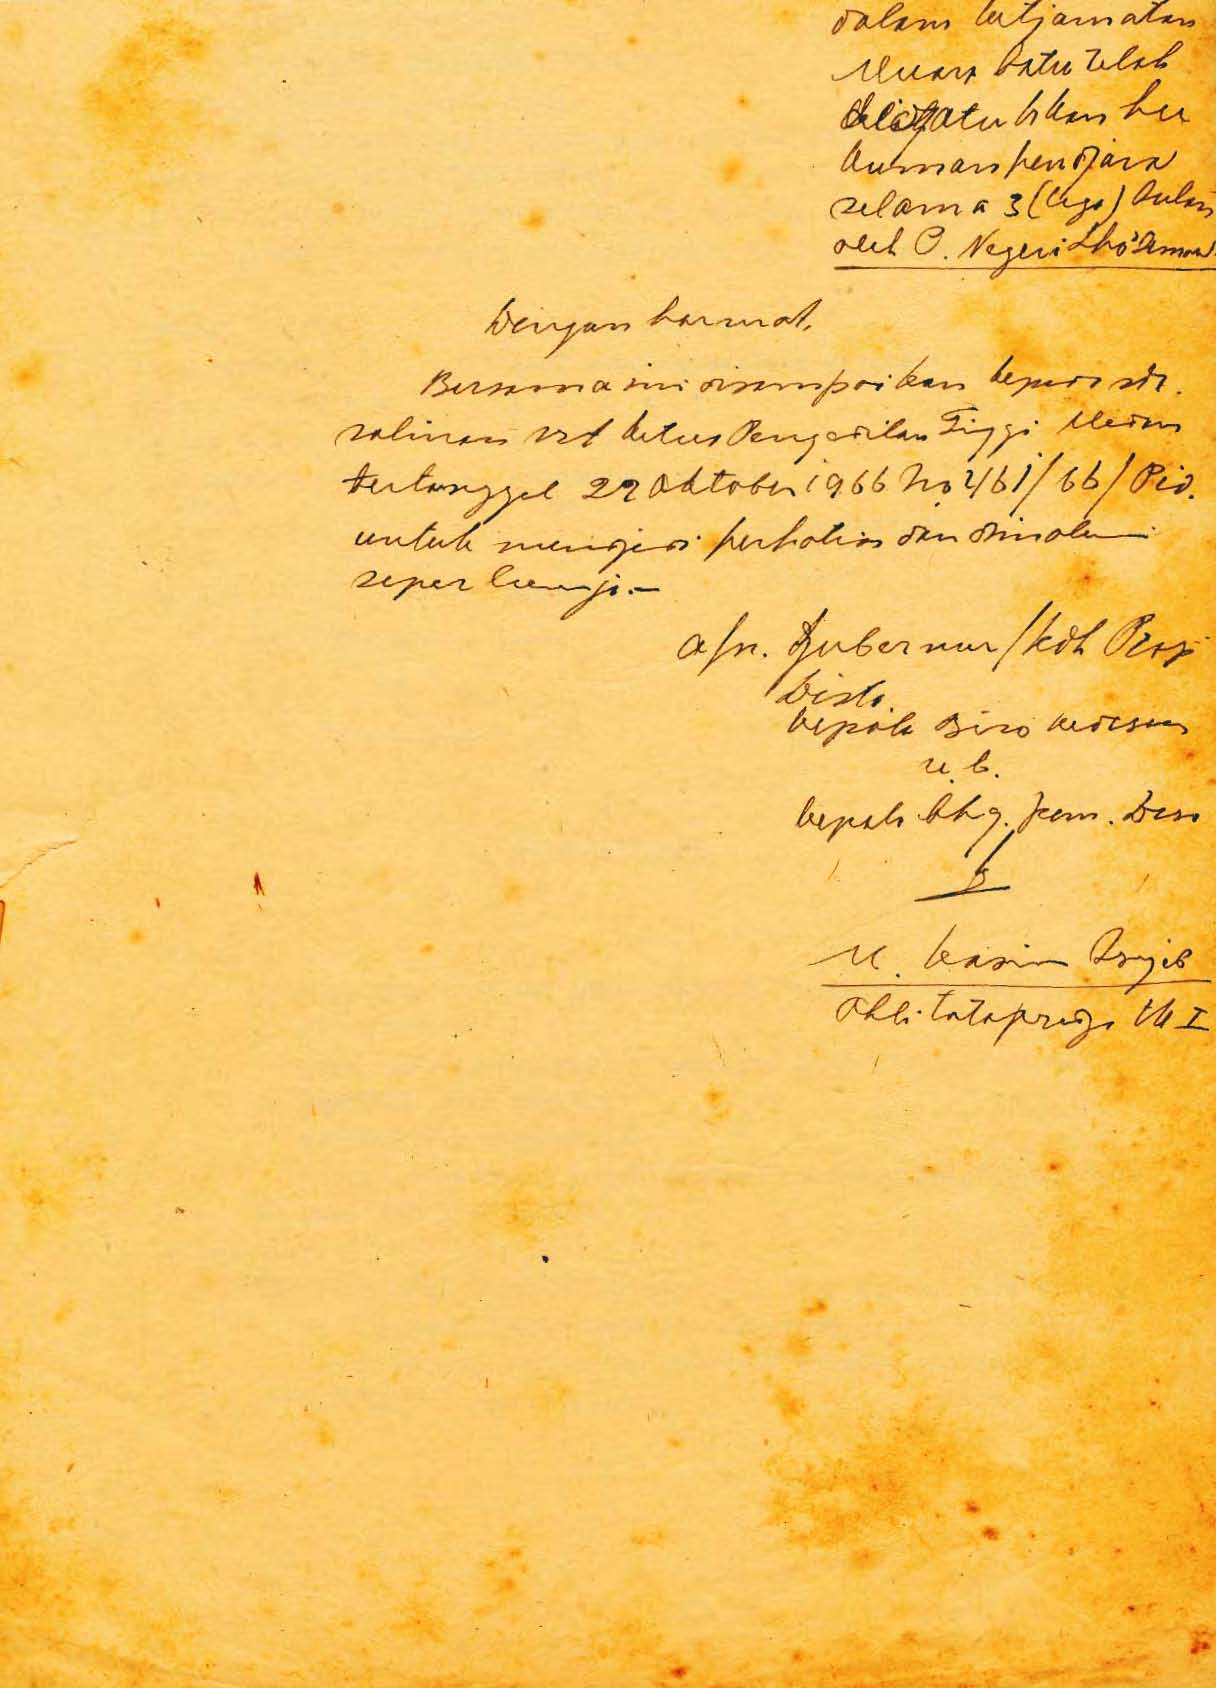 dalam ketjamatan
Muara Batu telah
didjatuhkan hu
kuman pendjara
selama 3 (tiga) bulan
oleh P. Negeri Lho'Semawe
Dengan hormat,
Bersama ini disampaikan kepada sdr.
salinan srt Ketua Pengadilan Tinggi Medan
tertanggal 22 Oktober 1966 No 461/66/Pid.
untuk mendjadi perhatian dan dimaklumi
seperlunja.-
a/n. Gubernur/Kdh Prop
Dista.
Kepala Biro Kedesaan
u.b.
Kepala bhg. Pem. Desa
M. Kasim
Ahli tatapradja Tk I